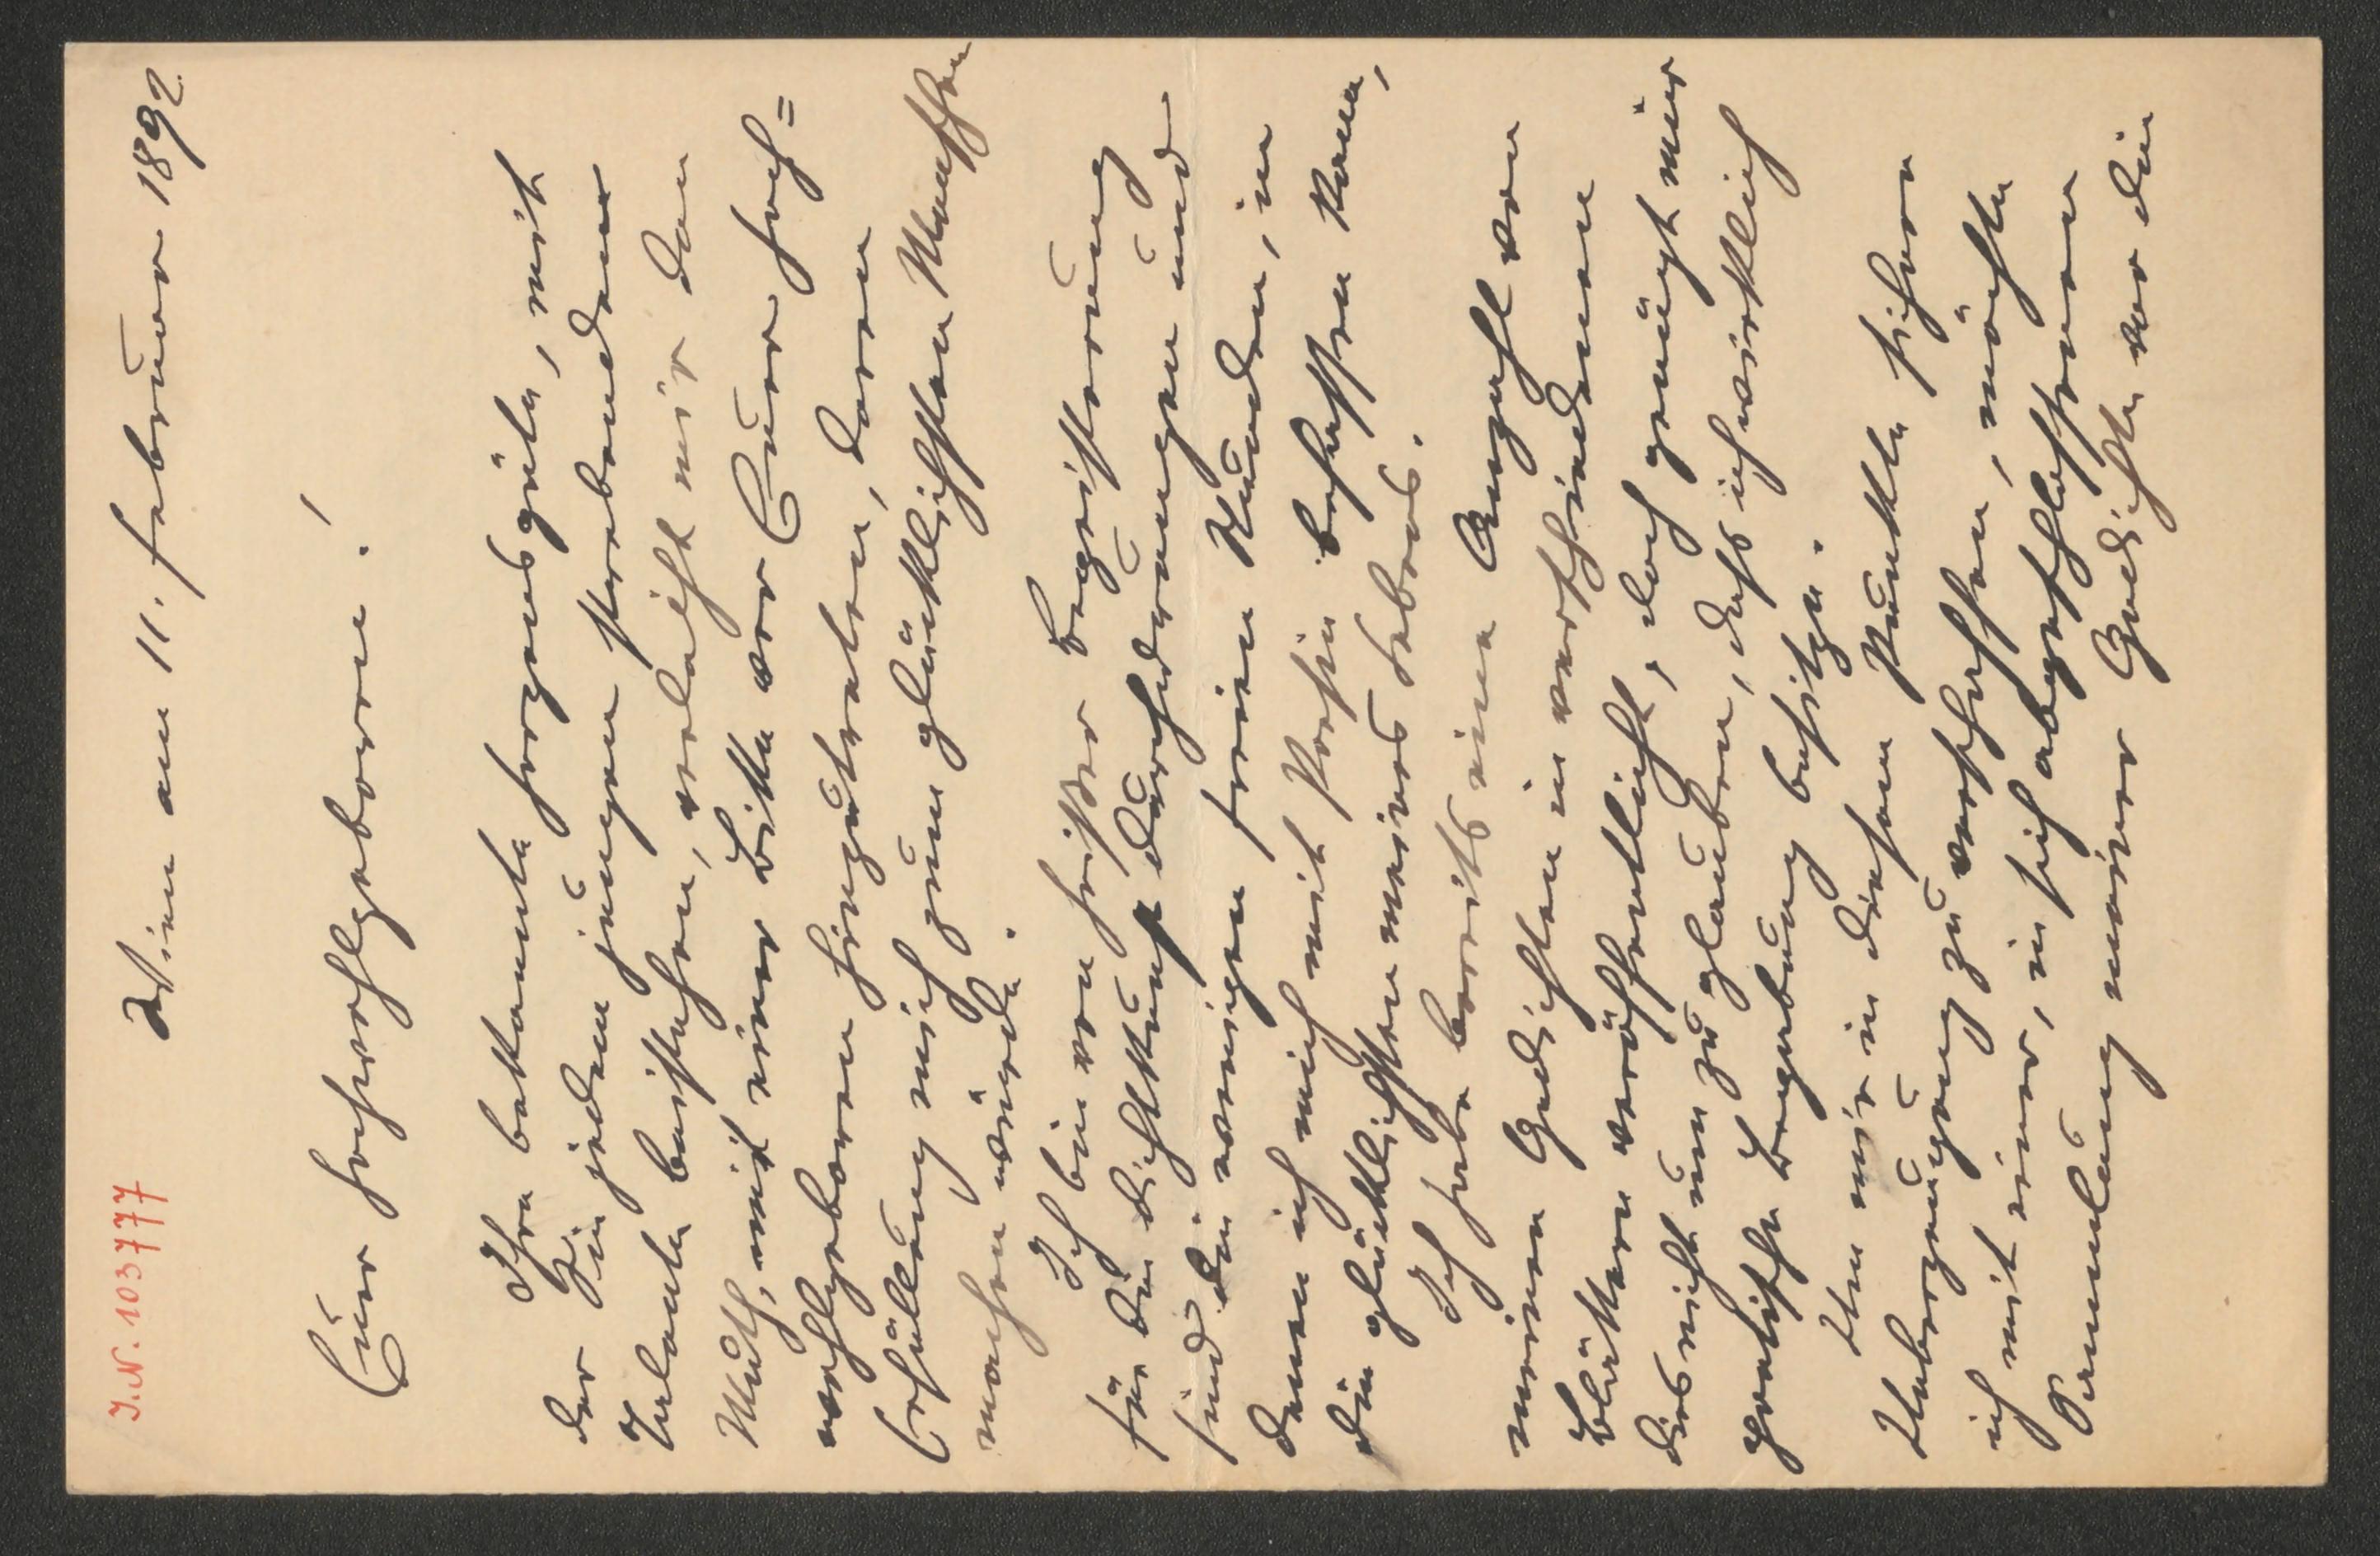 J.N. 103777
Wien am 11. Februar 1892
Euer Hochwohlgeboren!
Ihre bekannte Herzensgüte, mit
der Sie jedem jungen strebenden
Talente beistehen, verleiht mir den
Muth, mit einer Bitte vor Euer Hoch=
wohlgeboren hinzutreten, deren
Erfüllung mich zum glücklichsten Menschen
machen würde.
Ich bin von heißer Begeisterung
für die Dichtkunst durchdrungen und
sind die wenigen freien Stunden, in
denen ich mich mit Poesie befassen kann,
die glücklichsten meines Lebens.
Ich habe bereits eine Anzahl von
meinen Gedichten in verschiedenen
Blättern veröffentlicht, doch genügt mir
dies nicht um zu glauben, dass ich wirklich
poetische Begabung besitze.
Um mir in diesem Punkte sichere
Ueberzeugung zu verschaffen, möchte
ich mit einer, in sich abgeschlossenen
Sammlung meiner Gedichte vor die